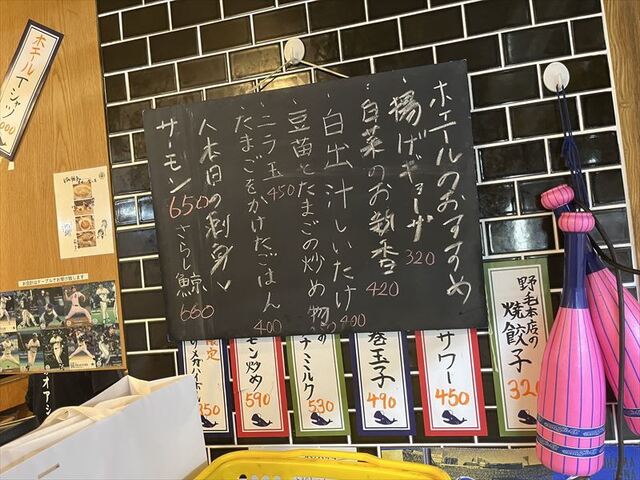 ホエールのおすすめ
・揚げギョーザ 320
・白菜のお新香 420
・白出汁しいたけ 400
・豆苗とたまごの炒め物
・ニラ玉 450
・たまごをかけたごはん 400
〈本日の刺身〉
サーモン 650 さらし鯨 660
野毛本店の
焼餃子 320
サワー 450
巻玉子 490
チミルク 530
モン炒め 590
350
ホエール
Tシャツ
お会計はテーブルでお受け致します